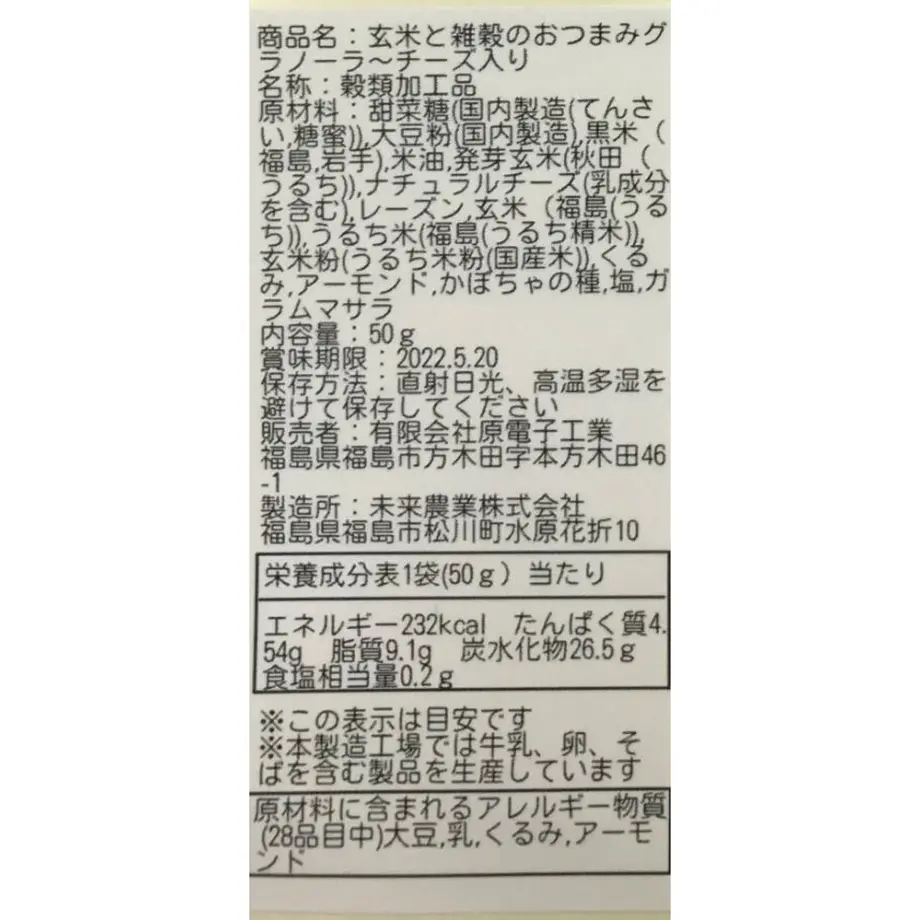 商品名：玄米と雑穀のおつまみグ
ラノーラ～チーズ入り
名称：穀類加工品
原材料：甜菜糖(国内製造(てんさ
い,糖蜜)),大豆粉(国内製造),黒米（
福島,岩手),米油,発芽玄米(秋田（
うるち)),ナチュラルチーズ(乳成分
を含む),レーズン,玄米（福島(うる
ち)),うるち米(福島(うるち精米)),
玄米粉(うるち米粉(国産米)),くる
み,アーモンド,かぼちゃの種,塩,ガ
ラムマサラ
内容量：50ｇ
賞味期限：2022.5.20
保存方法：直射日光、高温多湿を
避けて保存してください
販売者：有限会社原電子工業
福島県福島市方木田字本方木田46
-1
製造所：未来農業株式会社
福島県福島市松川町水原花折10
栄養成分表1袋(50ｇ）当たり
エネルギー232kcal　たんぱく質4.
54g　脂質9.1g　炭水化物26.5ｇ
食塩相当量0.2ｇ
※この表示は目安です
※本製造工場では牛乳、卵、そ
ばを含む製品を生産しています
原材料に含まれるアレルギー物質
(28品目中)大豆,乳,くるみ,アーモ
ンド